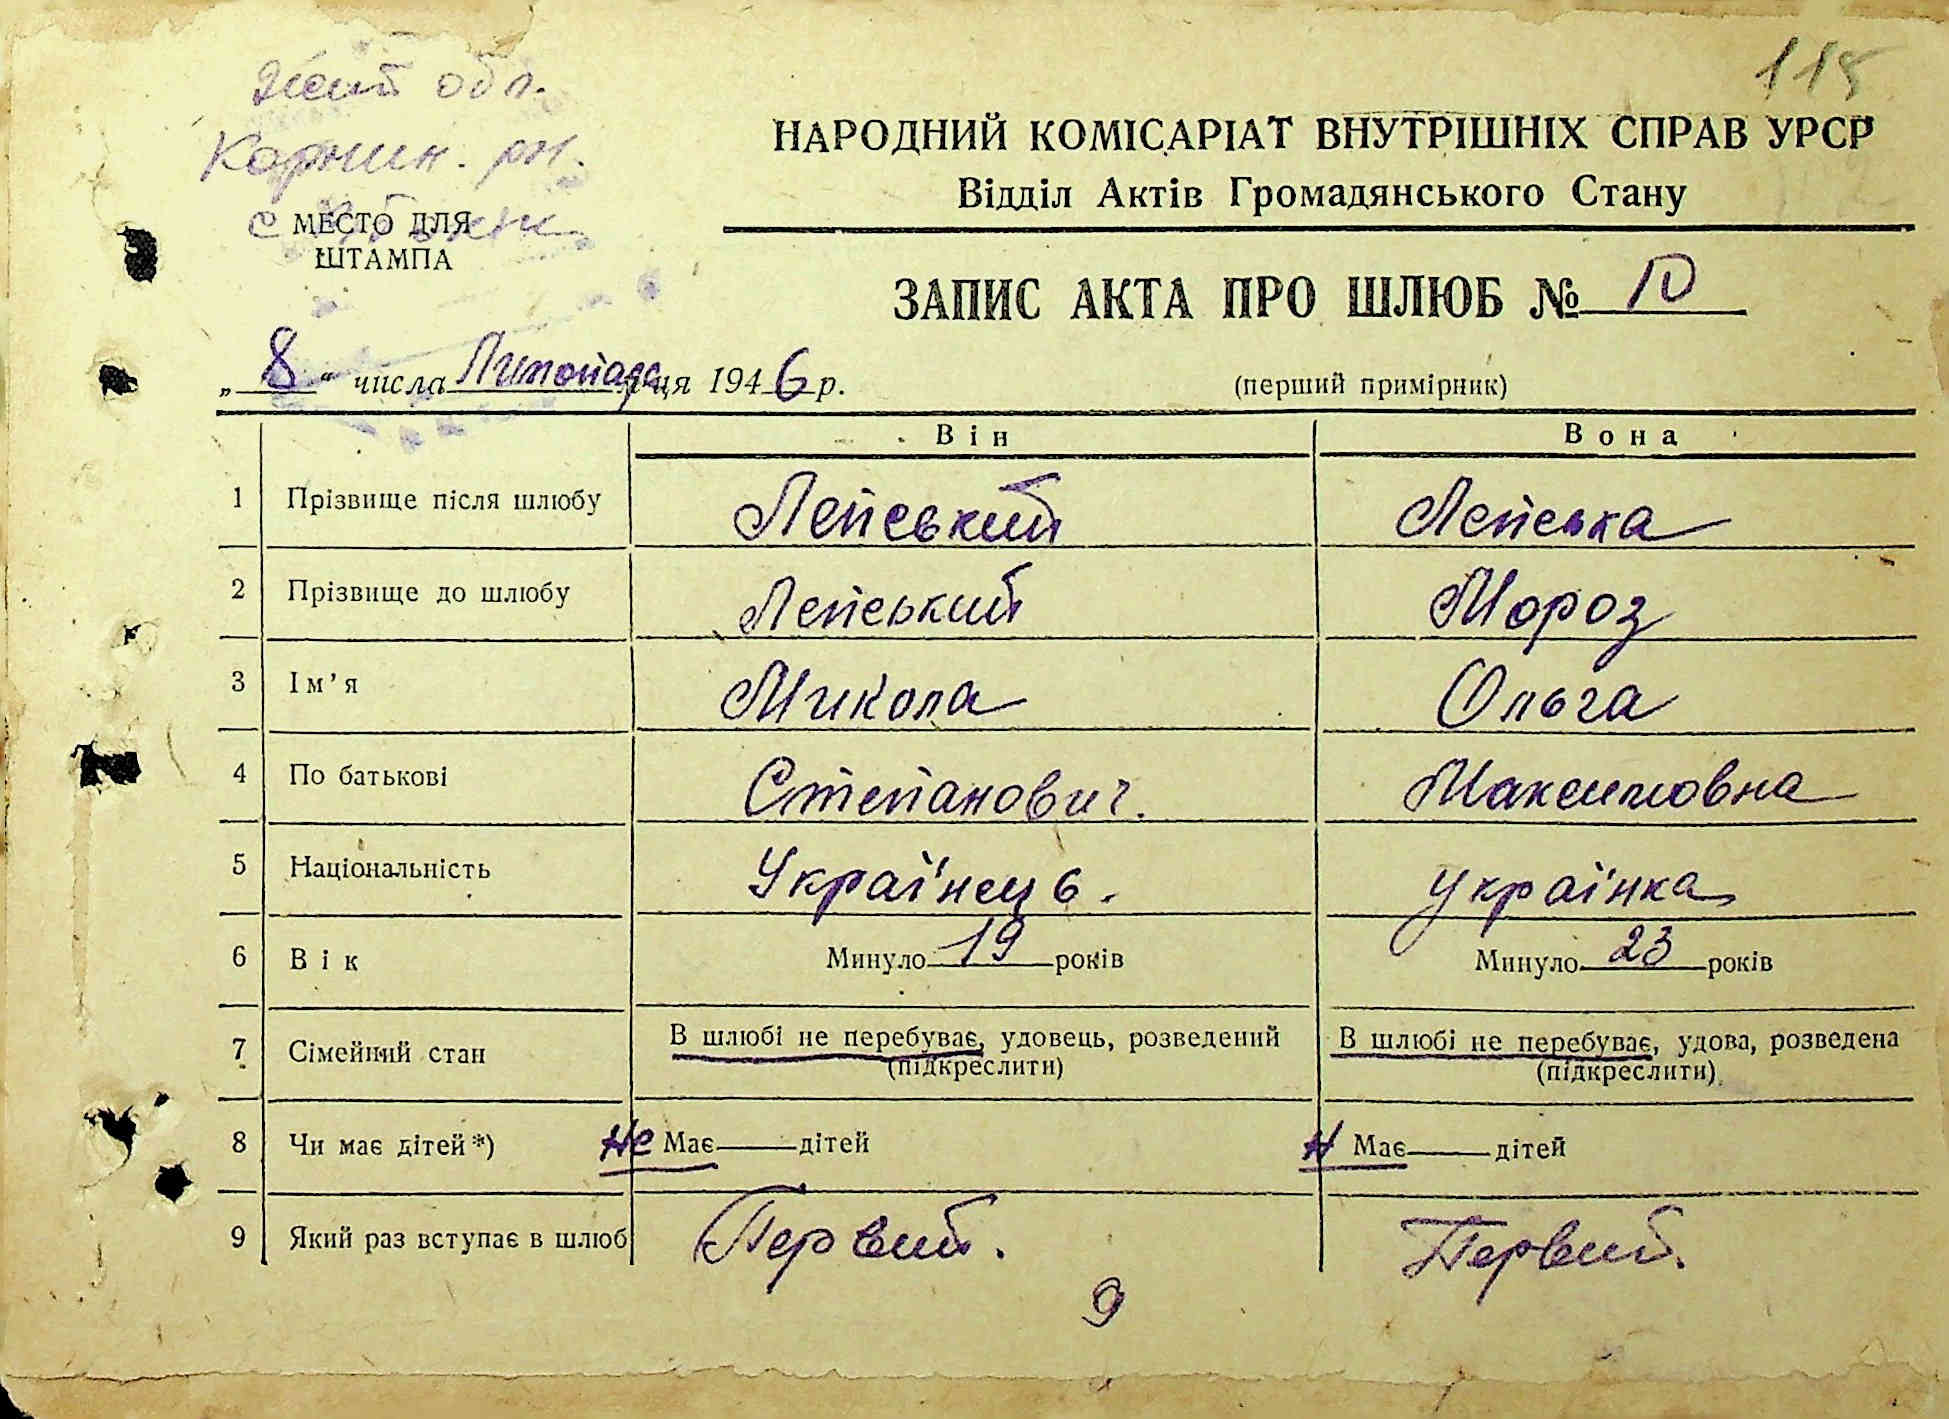 115
Жит обл.
Корнин. рн.
с
МЕСТО ДЛЯ
ШТАМПА
НАРОДНИЙ КОМІСАРІАТ ВНУТРІШНІХ СПРАВ УРСР
Відділ Актів Громадянського Стану
ЗАПИС АКТА ПРО ШЛЮБ № 10
„ 8 “ числа Листопада м-ця 1946 р.
(перший примірник)
Він Вона
1 Прізвище після шлюбу Лепський Лепська
2 Прізвище до шлюбу Лепський Мороз
3 Ім’я Микола Ольга
4 По батькові Степанович. Максимовна
5 Національність Українець. Українка
6 Вік Минуло 19 років Минуло 23 років
7 Сімейний стан В шлюбі не перебуває, удовець, розведений В шлюбі не перебуває, удова, розведена
(підкреслити) (підкреслити)
8 Чи має дітей *) не Має дітей н Має дітей
9 Який раз вступає в шлюб Первий. Первий.
9